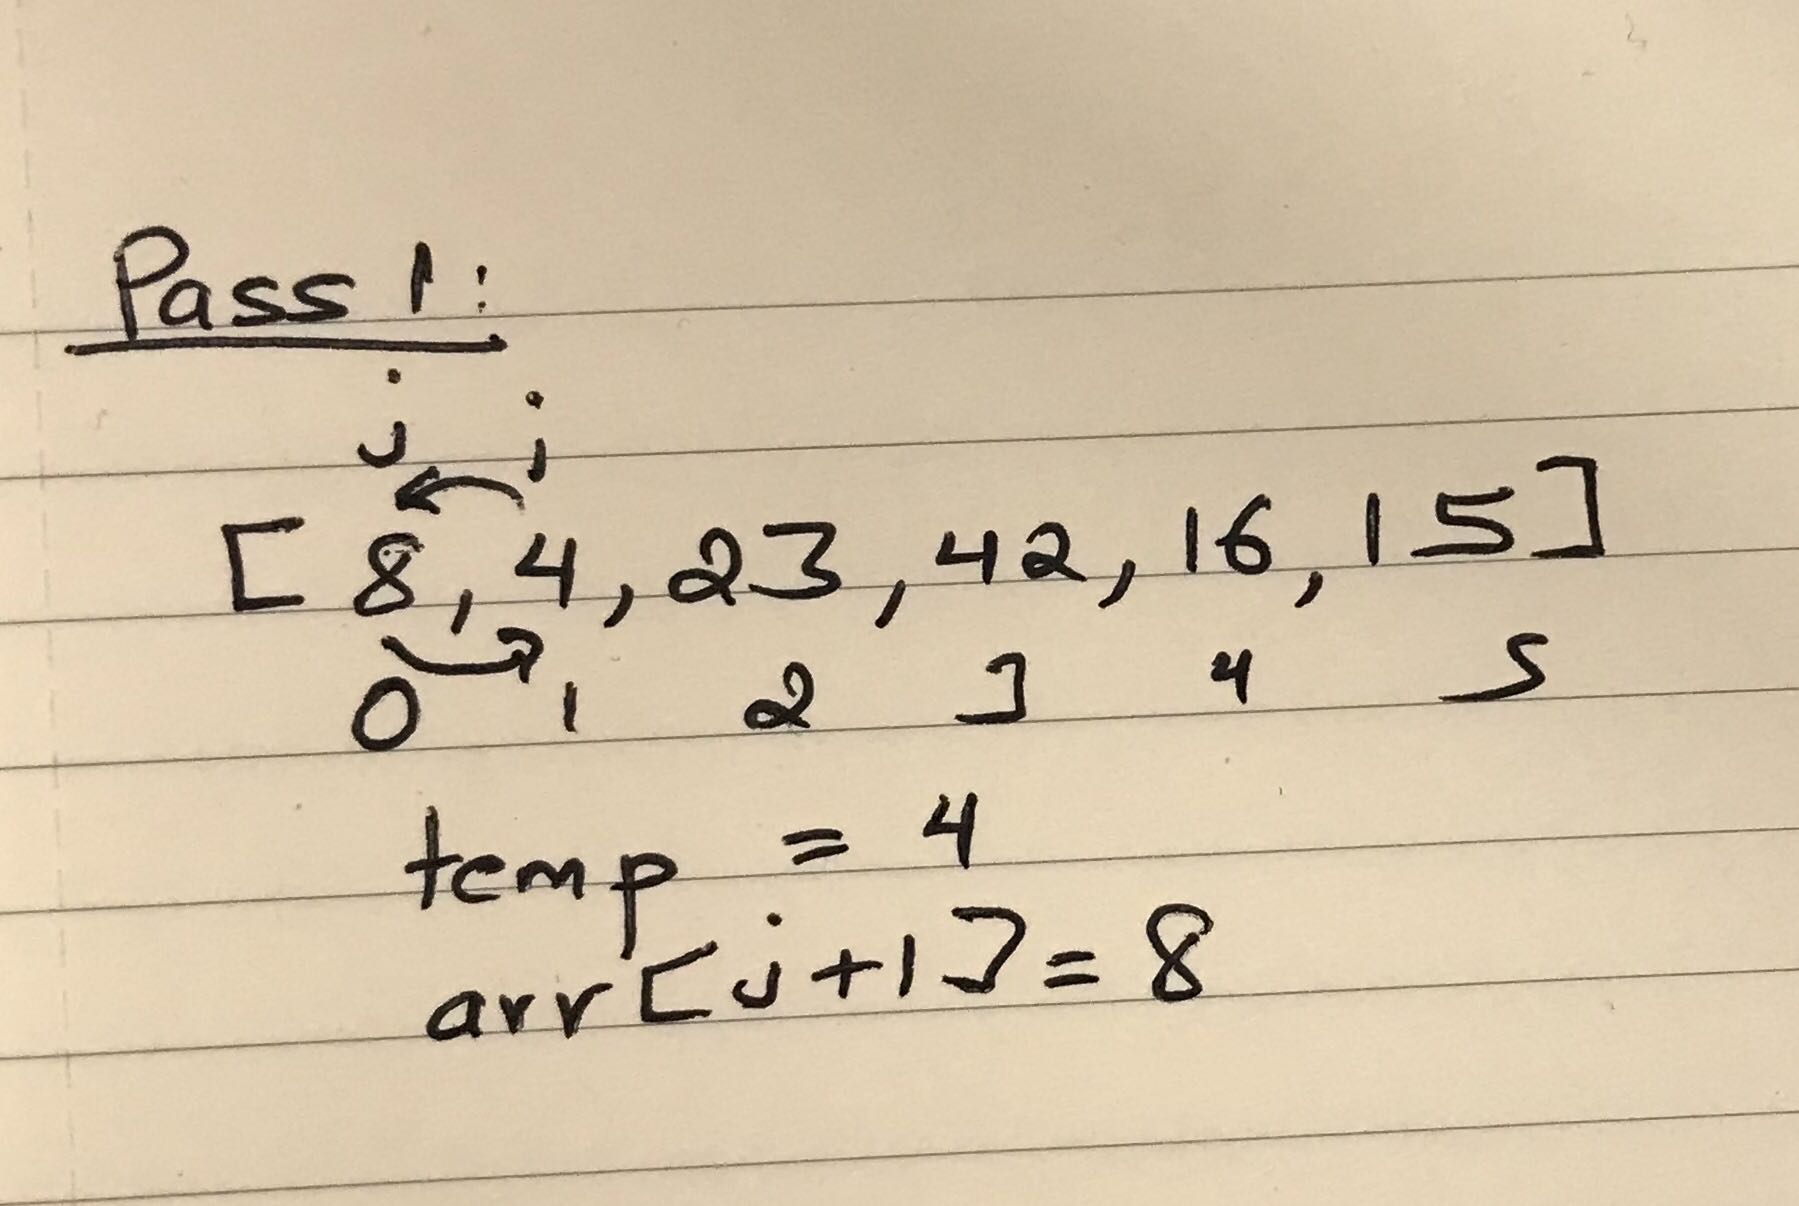 Pass 1:
j i
[8, 4, 23, 42, 16, 15]
0 1 2 3 4 5
temp = 4
arr[j+1] = 8